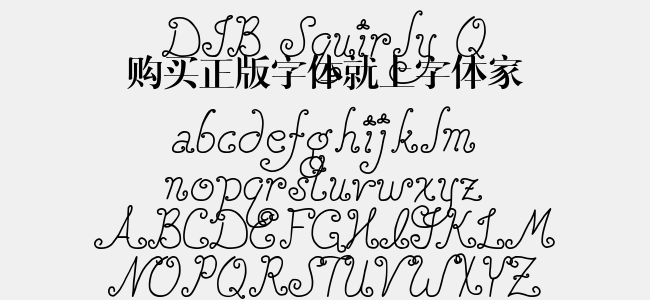 DJB Squirly Q
购买正版字体就上字体家
abcdefghijklm
nopqrstuvwxyz
ABCDEFGHIJKLM
NOPQRSTUVWXYZ